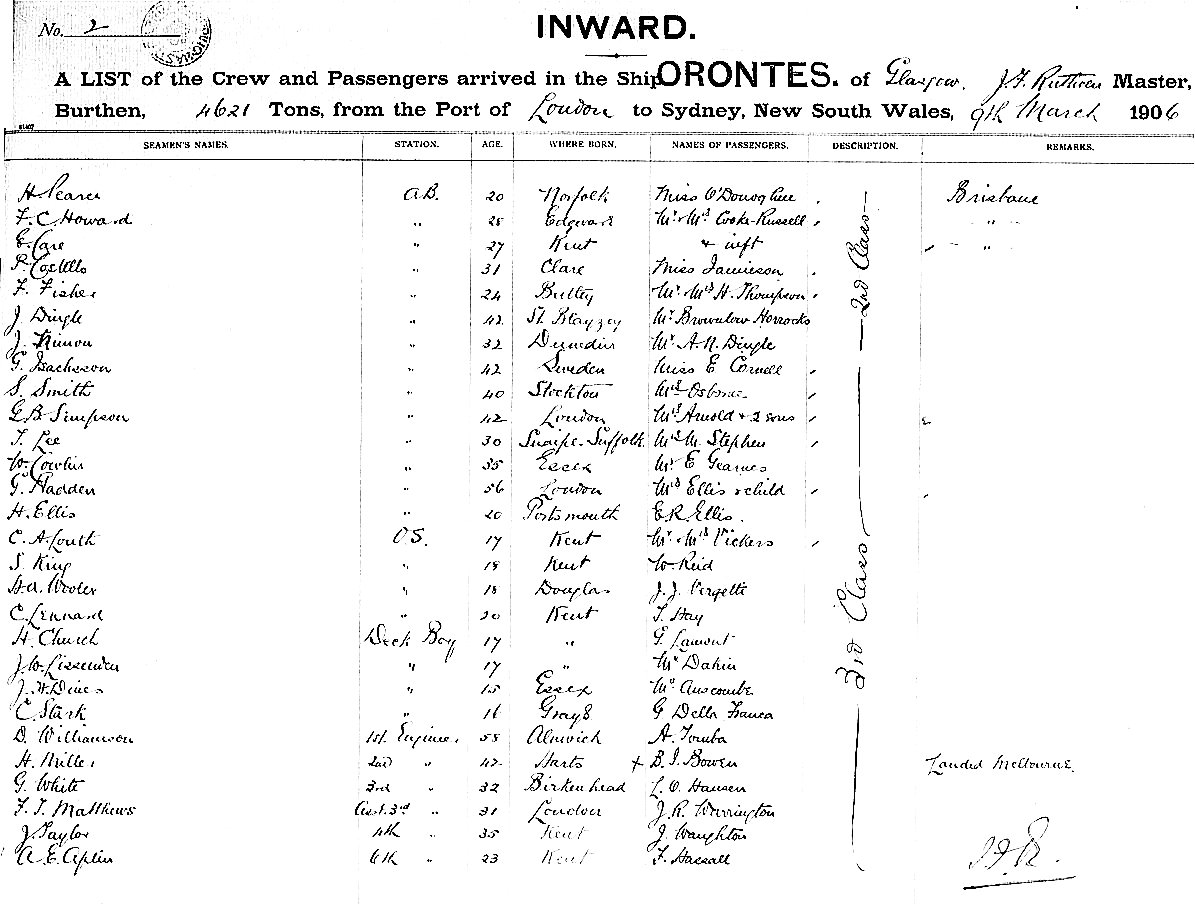 No. 2
INWARD.
A LIST of the Crew and Passengers arrived in the Ship ORONTES. of Glasgow, J.F. Ruthven Master,
Burthen, 4621 Tons, from the Port of London to Sydney, New South Wales, 9th March 1906
SEAMEN'S NAMES. STATION. AGE. WHERE BORN. NAMES OF PASSENGERS. DESCRIPTION. REMARKS.
H. Pearce A.B. 20 Norfolk Miss O'Donoghue Brisbane
F. C. Howard " 28 Edgware Mr Mrs Cooke-Russell "
E. Care " 27 Kent + inft "
P. Costello " 31 Clare Miss Jamieson
F. Fisher " 24 Butley Mr Mrs H. Thompson
J. Dingle " 42 St. Blazzey Mr Brownlow Horrocks
J. " 32 Dunedin Mr A.N. Dingle
G. Isackson " 42 Sweden Miss E Cornell
S. Smith " 40 Stockton Mrs Osborne
G.B. Simpson " 42 London Mrs Arnold + 2 sons
T. Lee " 30 Snaipe-Suffolk Mrs M. Stephen
W. Cowlin " 35 Essex Mr E Gearnes
G. Hadden " 56 London Mrs Ellis + child
H. Ellis " 20 Portsmouth E R Ellis.
C. A. Louth O.S. 17 Kent Mr Mrs Vickers
S. King " 18 Kent W. Reid
H.A. Wooler " 18 Douglas J.J. Vergette
C. Lennard " 20 Kent T. Hay
H. Church Deck Boy 17 " G. Lamont
J.W. Lissenden " 17 " Mr Dakin
J.H. Dines " 15 Essex Mr Anscombe
C. Stark " 16 Grays G Della Franca
D. Williamson 1st. Engineer 58 Alnwich A. Tomba
H. Miller 2nd " 42 Harts + B. I. Bowen Landed Melbourne.
G. White 3rd " 32 Birkenhead L. O. Hansen
F. T. Matthews Asst. 3rd " 31 London J.R. Warrington
J Taylor 4th " 35 Kent J. Waughton
A. E. Aplin 6th " 23 Kent F. Hassall
2nd Class
3rd Class
J.F.R.